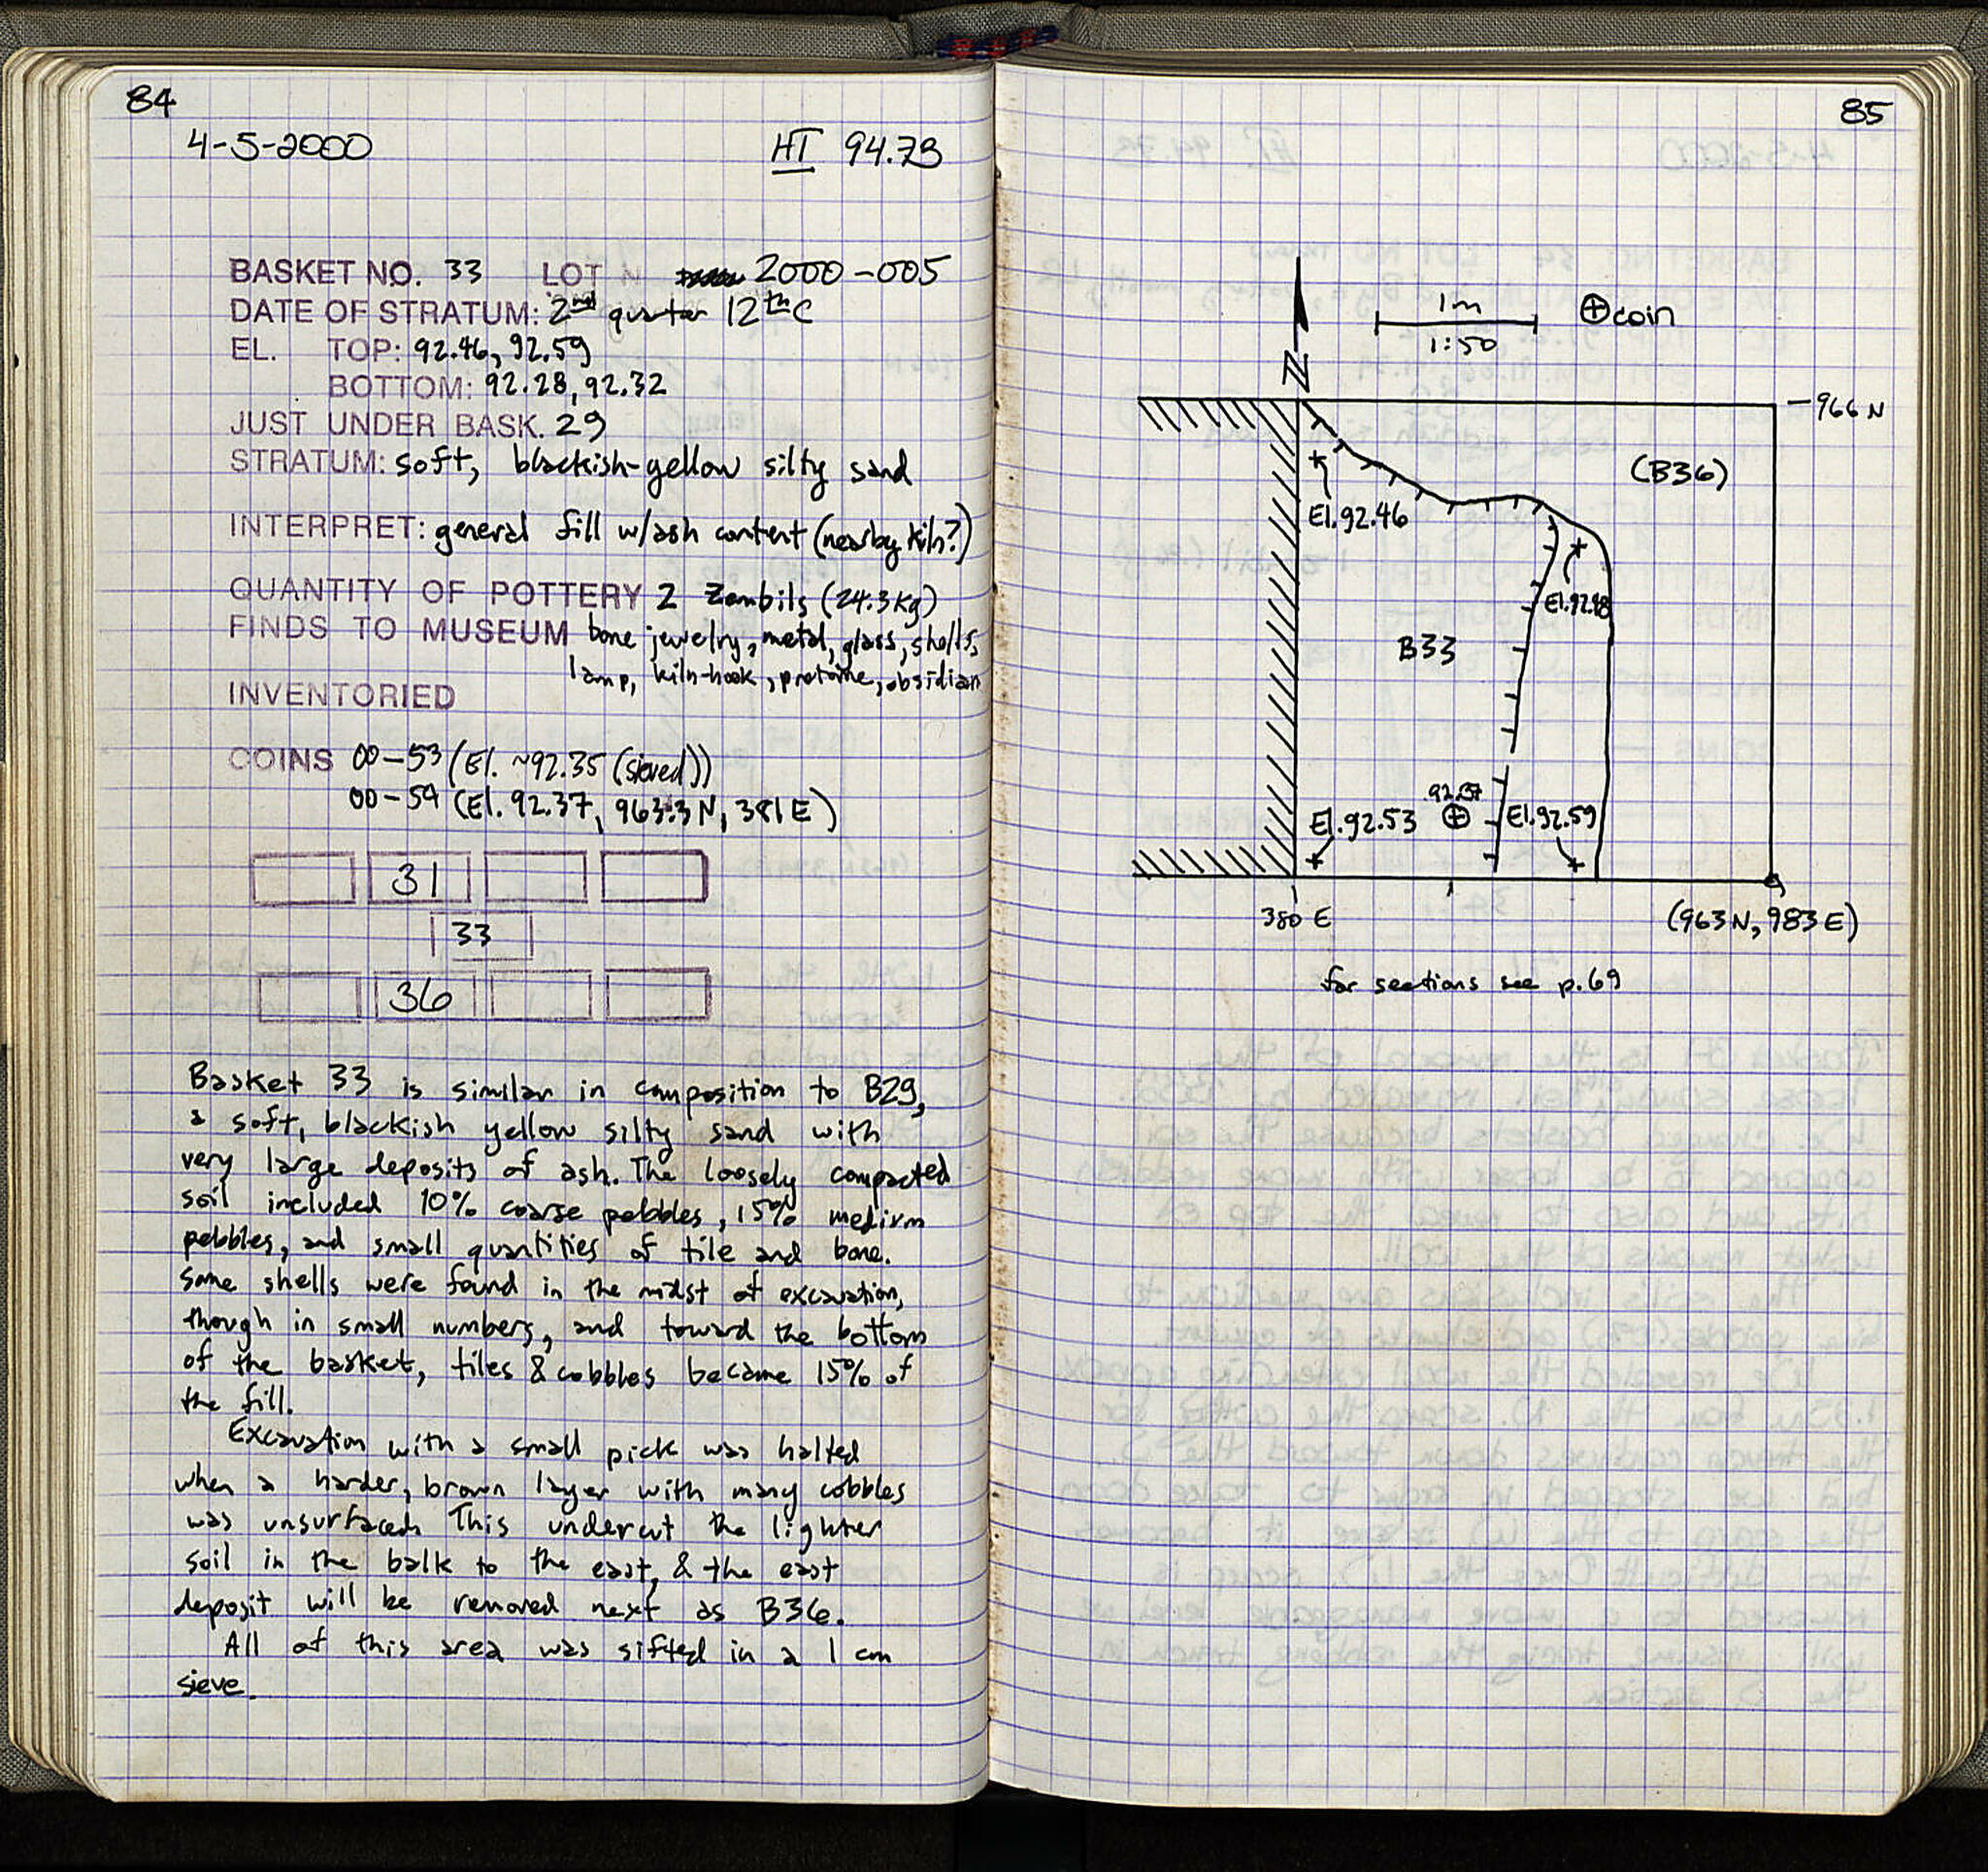 84
4-5-2000 HI 94.73
BASKET NO. 33 LOT N 2000-005
DATE OF STRATUM: 2nd quarter 12th C
EL. TOP: 92.46, 92.59
BOTTOM: 92.28, 92.32
JUST UNDER BASK. 29
STRATUM: soft, blackish-yellow silty sand
INTERPRET: general fill w/ash content (nearby kiln?)
QUANTITY OF POTTERY 2 Zembils (24.3kg)
FINDS TO MUSEUM bone jewelry, metal, glass, shells,
lamp, kiln-hook, protome, obsidian
INVENTORIED
COINS 00-53 (El. ~92.35 (sieved))
00-54 (El. 92.37, 963.3N, 381E)
31
33
36
Basket 33 is similar in composition to B29,
a soft, blackish yellow silty sand with
very large deposits of ash. The loosely compacted
soil included 10% coarse pebbles, 15% medium
pebbles, and small quantities of tile and bone.
Some shells were found in the midst of excavation,
though in small numbers, and toward the bottom
of the basket, tiles & cobbles became 15% of
the fill.
Excavation with a small pick was halted
when a harder, brown layer with many cobbles
was unsurfaced. This undercut the lighter
soil in the balk to the east, & the east
deposit will be removed next as B36.
All of this area was sifted in a 1 cm
sieve.
85
1m
1:50
⊕ coin
N
966 N
(B36)
El. 92.46
El. 92.48
B33
92.37
El. 92.53
El. 92.59
380 E
(963N, 983E)
for sections see p. 69